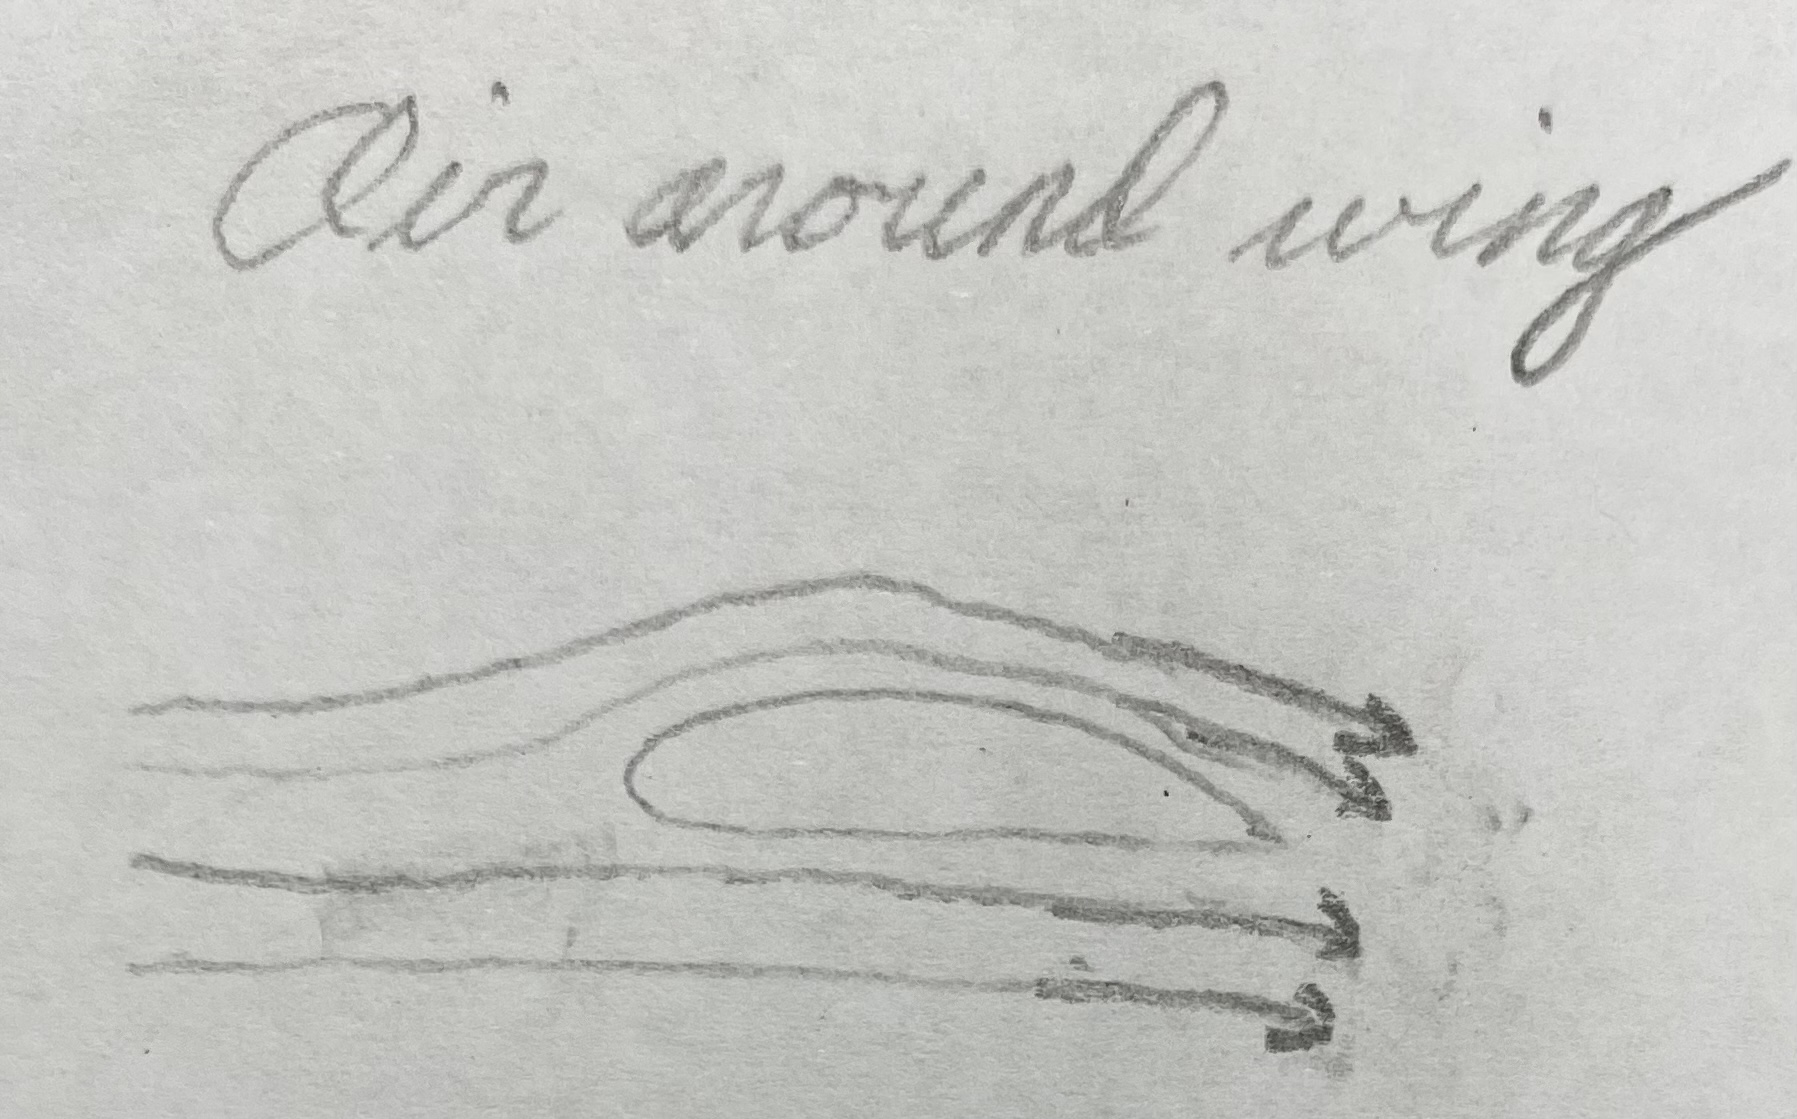 Air around wing